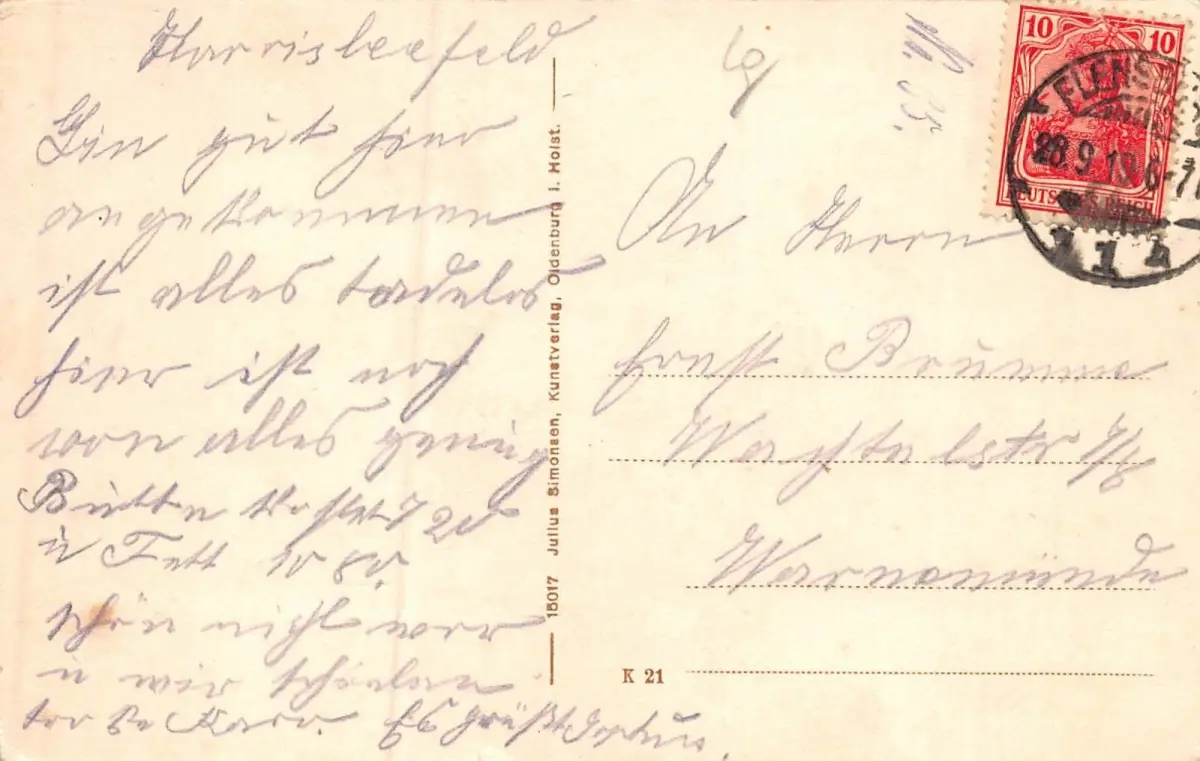 Harrisleefeld
Bin gut hier
angekommen
ist alles tadelos
hier ist noch
von alles genug
Butter kostet 7 20
u Fett 10 80.
schön nicht war
u wir
Es Grüßt
15017 Julius Simonsen, Kunstverlag, Oldenburg i. Holst.
10 10
FLENS
28.9.19.6-7
DEUTSCHES REICH
An Herrn
Ernst Brumme
Wachtelstr
Warnemünde
K 21